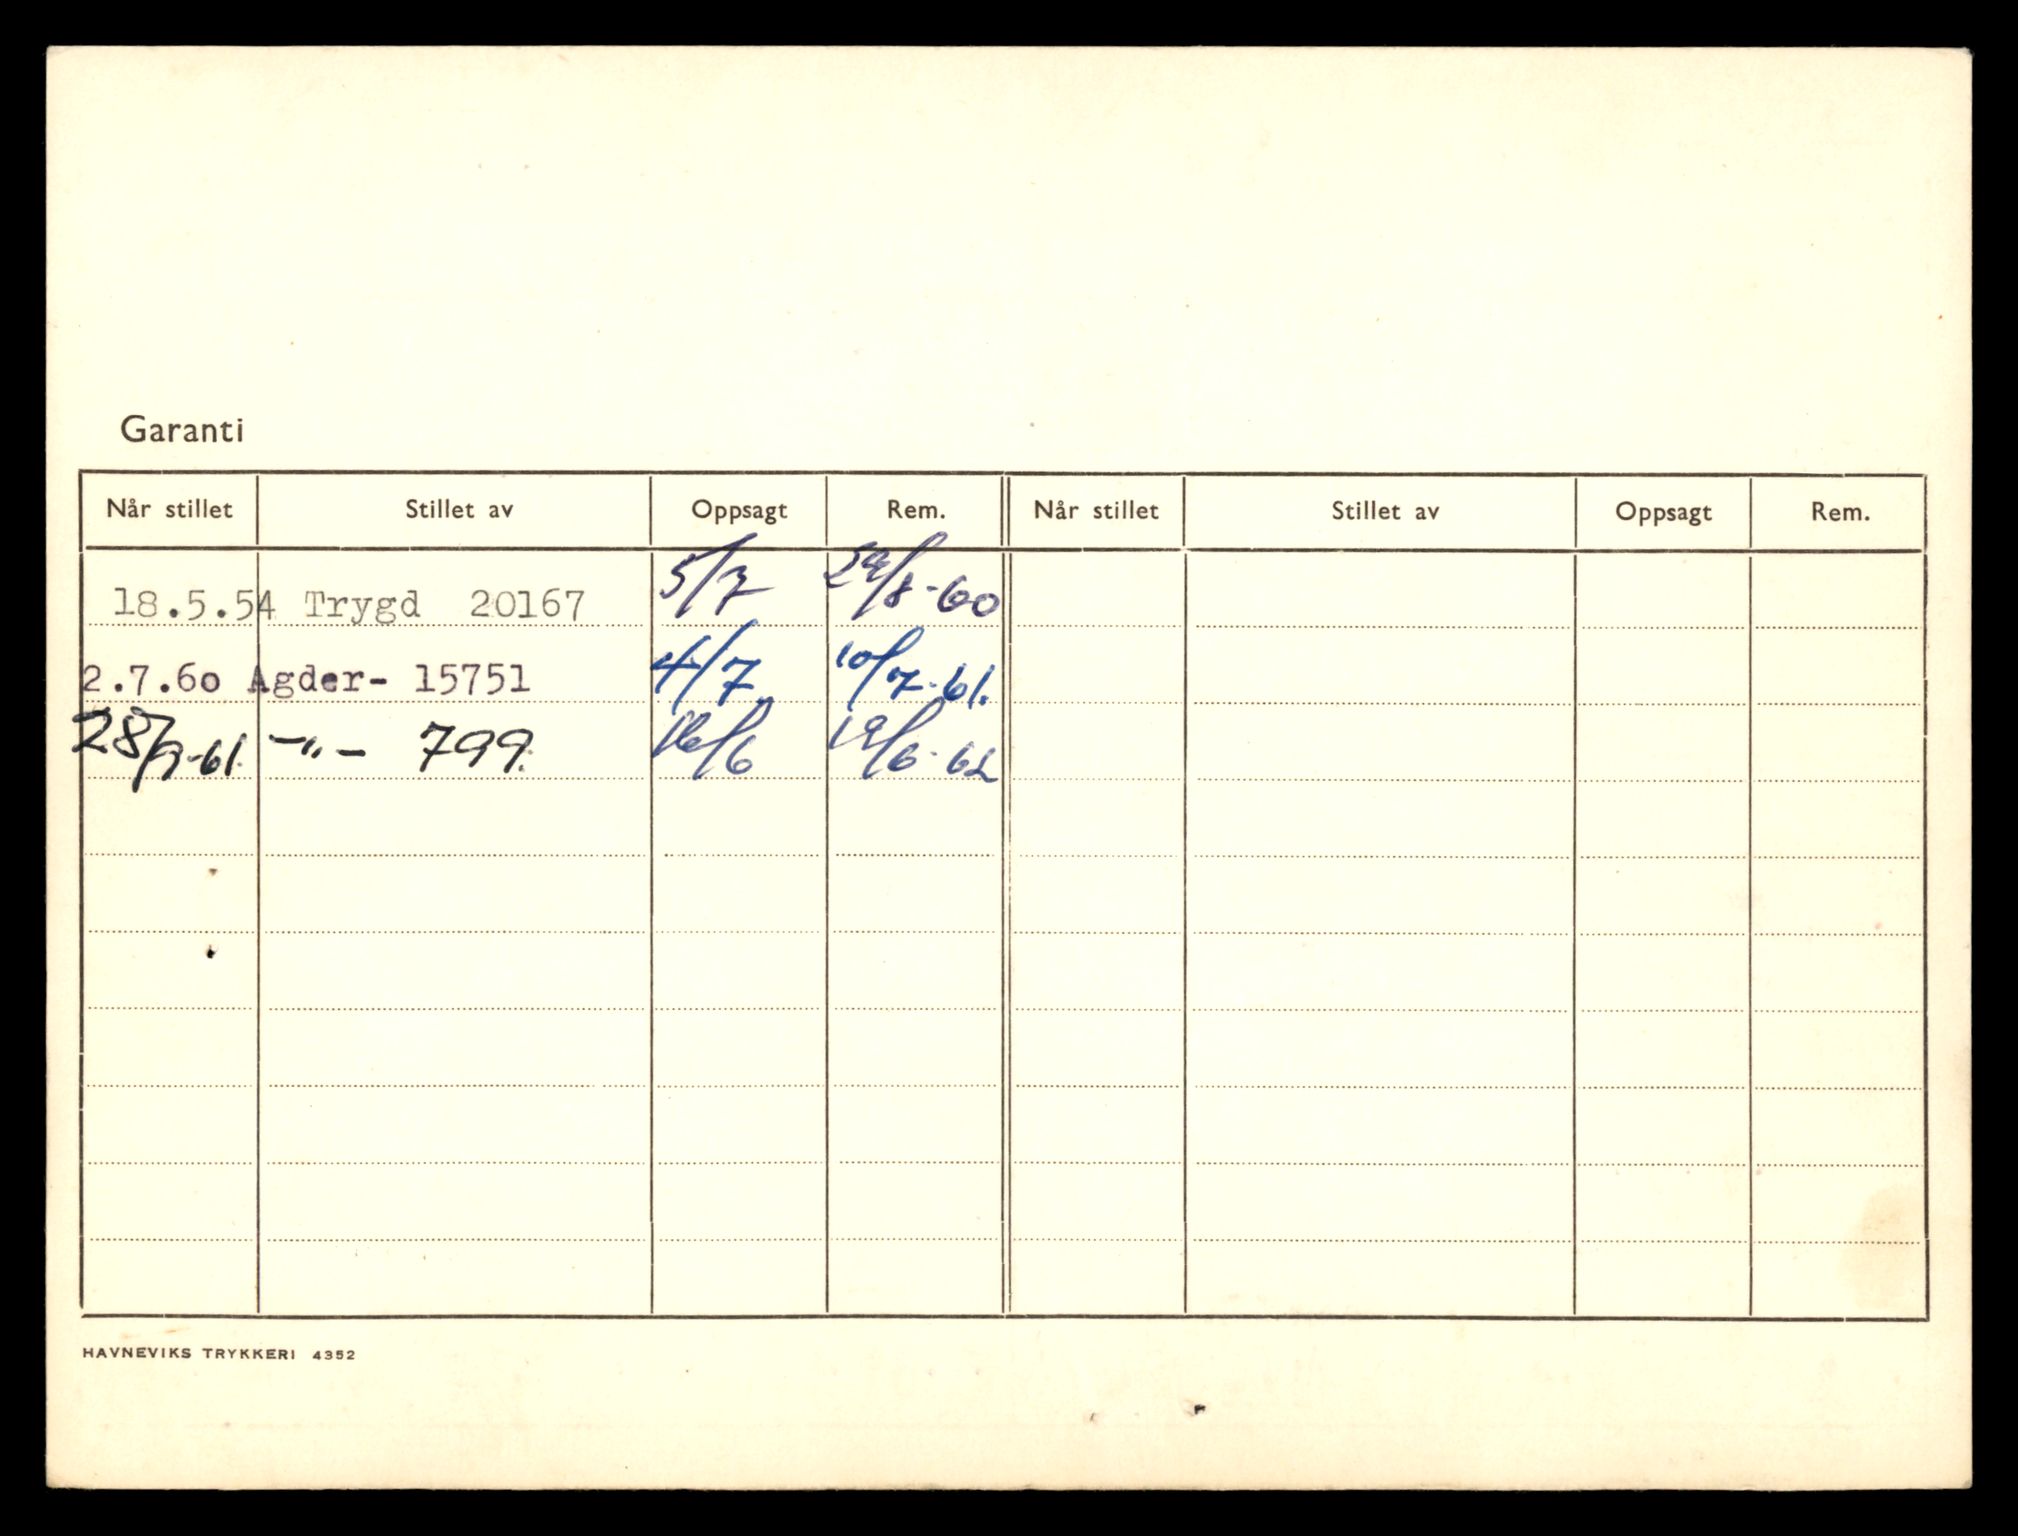 Garanti
Når stillet Stillet av Oppsagt Rem. Når stillet Stillet av Oppsagt Rem.
18.5.54 Trygd 20167 5/7 29/8-60
2.7.60 Agder- 15751 4/7 10/7-61.
28/9-61. -"- 799. 16/6 19/6-62
HAVNEVIKS TRYKKERI 4352